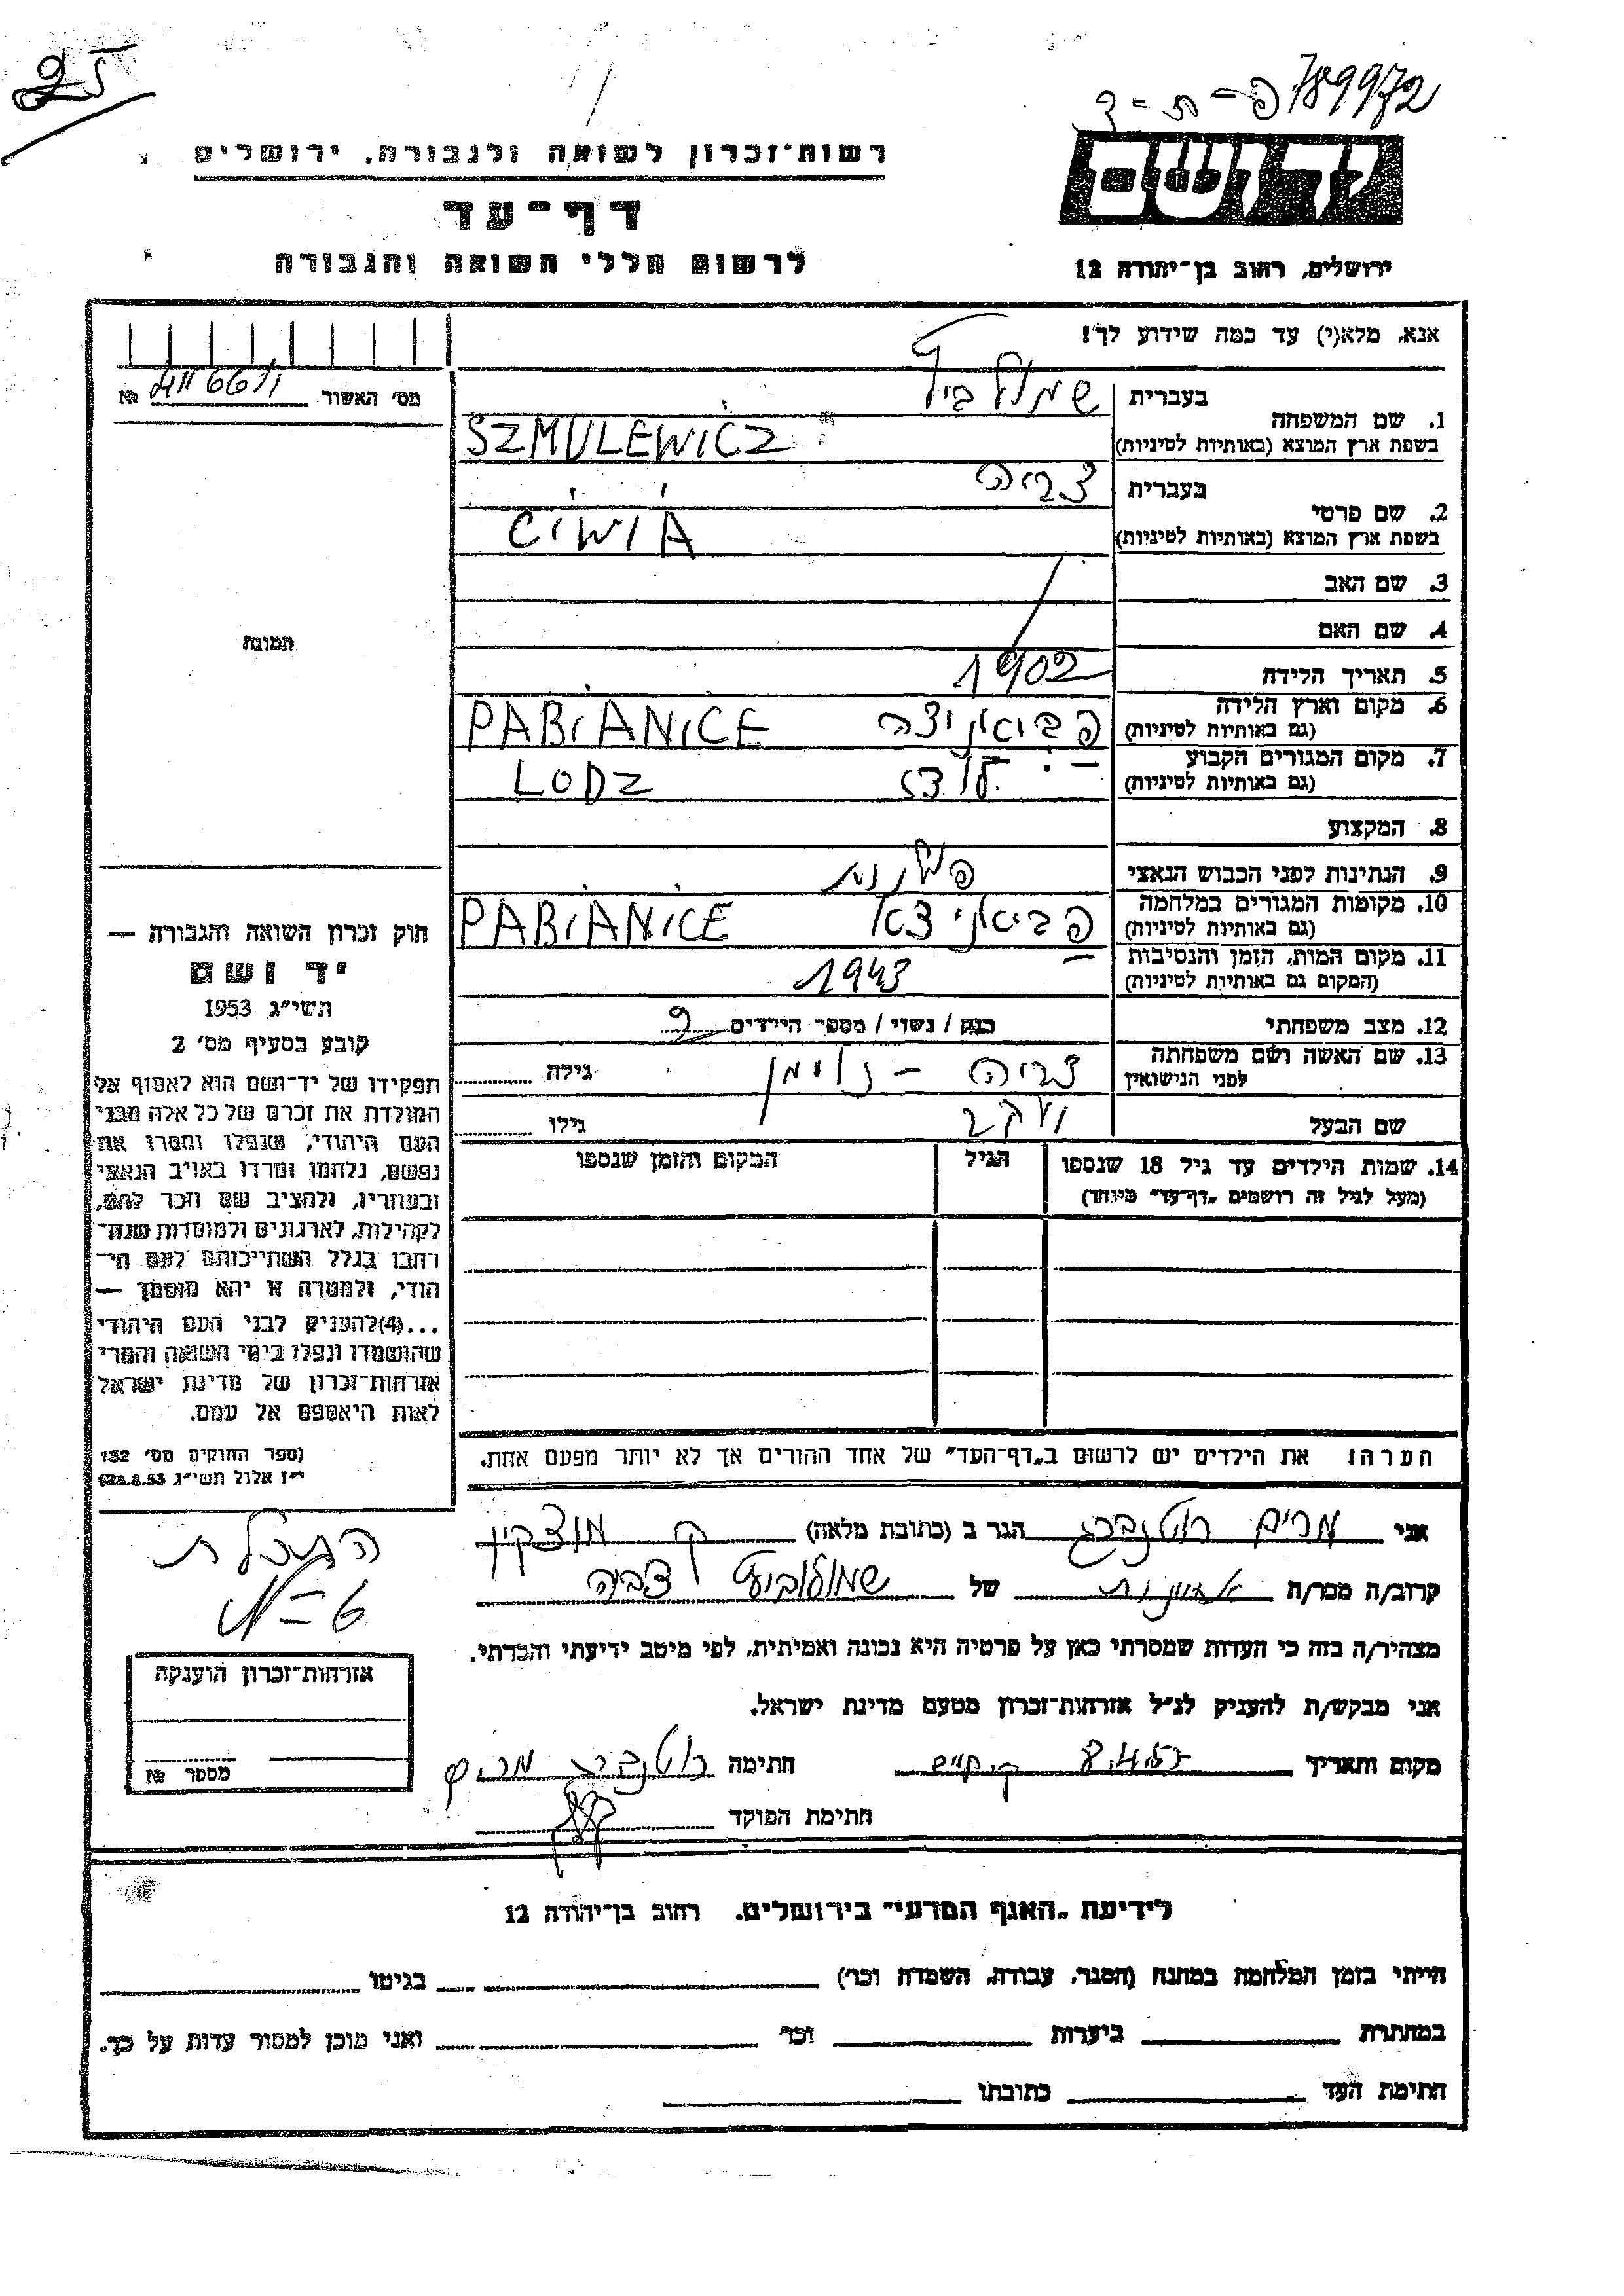 25
789972
פ-ת-ך
רשות-זכרון לשואה ולגבורה, ירושלים
דף-עד
לרשום חללי השואה והגבורה
ירושלים, רחוב בן-יהודה 12
אנא, מלא(י) עד כמה שידוע לך!
מס׳ האשור № 411661
1. שם המשפחה
בעברית
בשפת ארץ המוצא (באותיות לטיניות)
SZMULEWICZ
2. שם פרטי
בעברית צביה
בשפת ארץ המוצא (באותיות לטיניות)
CIWIA
3. שם האב
4. שם האם
תמונה
5. תאריך הלידה 1902
6. מקום וארץ הלידה פביאניצה PABIANICE
(גם באותיות לטיניות)
7. מקום המגורים הקבוע לודז LODZ
(גם באותיות לטיניות)
8. המקצוע
9. הנתינות לפני הכבוש הנאצי
10. מקומות המגורים במלחמה פביאניצא PABIANICE
(גם באותיות לטיניות)
11. מקום המות, הזמן והנסיבות 1943
(המקום גם באותיות לטיניות)
12. מצב משפחתי רוק / נשוי / מספר הילדים 2
13. שם האשה ושם משפחתה צביה - נוימן גילה
לפני הנישואין
שם הבעל יעקב גילו
14. שמות הילדים עד גיל 18 שנספו הגיל המקום והזמן שנספו
(מעל לגיל זה רושמים „דף-עד״ מיוחד)
חוק זכרון השואה והגבורה —
יד ושם
תשי״ג 1953
קובע בסעיף מס׳ 2
תפקידו של יד-ושם הוא לאסוף אל
המולדת את זכרם של כל אלה מבני
העם היהודי, שנפלו ומסרו את
נפשם, נלחמו ומרדו באויב הנאצי
ובעוזריו, ולהציב שם וזכר להם,
לקהילות, לארגונים ולמוסדות שנח-
רבו בגלל השתייכותם לעם הי-
הודי, ולמטרה זו יהא מוסמך —
...(4) להעניק לבני העם היהודי
שהושמדו ונפלו בימי השואה והמרי
אזרחות-זכרון של מדינת ישראל
לאות היאספם אל עמם.
(ספר החוקים מס׳ 132
י״ז אלול תשי״ג 28.8.53)
הערה: את הילדים יש לרשום ב„דף-העד״ של אחד ההורים אך לא יותר מפעם אחת.
אני מרים רוטנברג הגר ב (כתובת מלאה) ק מוצקין
קרוב/ה מכר/ה של שמולוביץ צביה
מצהיר/ה בזה כי העדות שמסרתי כאן על פרטיה היא נכונה ואמיתית, לפי מיטב ידיעתי והכרתי.
אני מבקש/ת להעניק לנ״ל אזרחות-זכרון מטעם מדינת ישראל.
מקום ותאריך חתימה רוטנברג מרים
חתימת הפוקד
אזרחות-זכרון הוענקה
מספר №
לידיעת „האגף המדעי״ בירושלים. רחוב בן-יהודה 12
הייתי בזמן המלחמה במחנה (הסגר, עבודה, השמדה וכו׳) בגיטו
במחתרת ביערות וכו׳ ואני מוכן למסור עדות על כך.
חתימת העד כתובתו